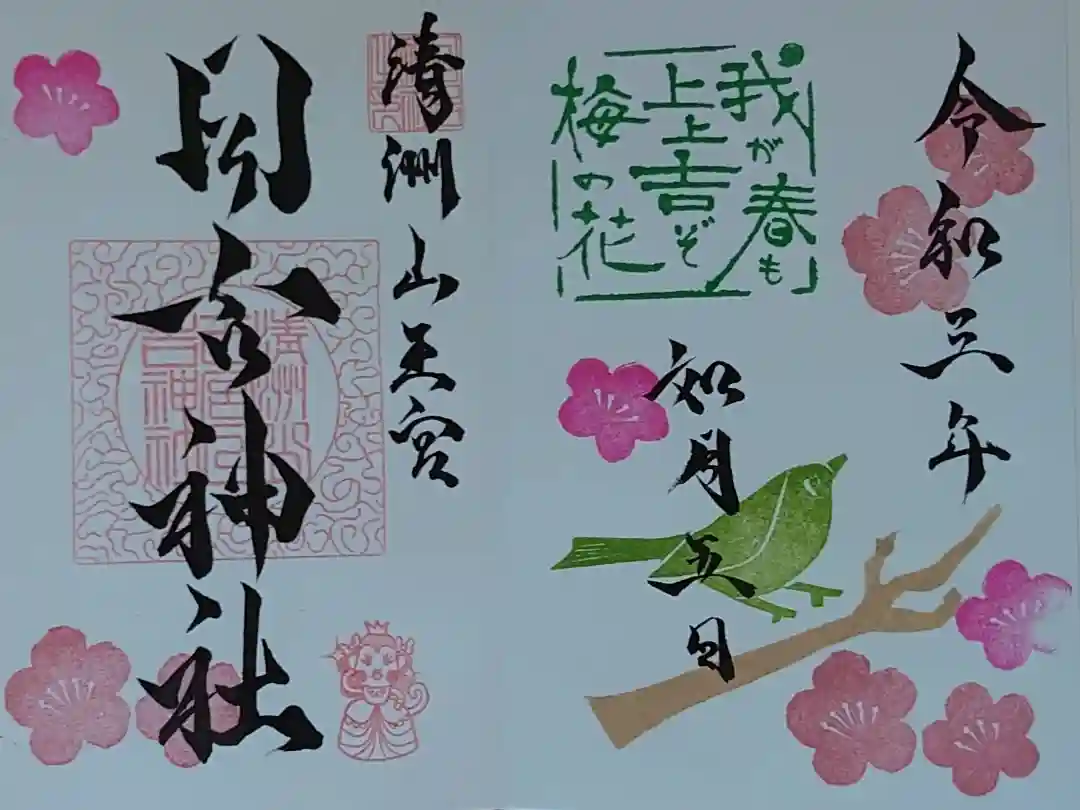 令和三年
如月五日
我が春も
上上吉ぞ
梅の花
清洲山王宮
日吉神社